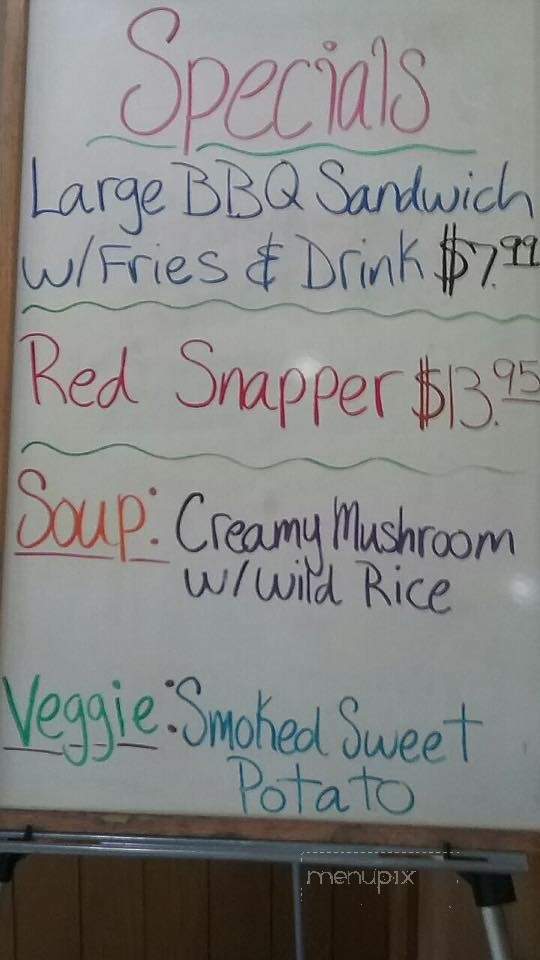 Specials
Large BBQ Sandwich
w/Fries & Drink $7.99
Red Snapper $13.95
Soup: Creamy Mushroom
w/Wild Rice
Veggie: Smoked Sweet
Potato
menupix